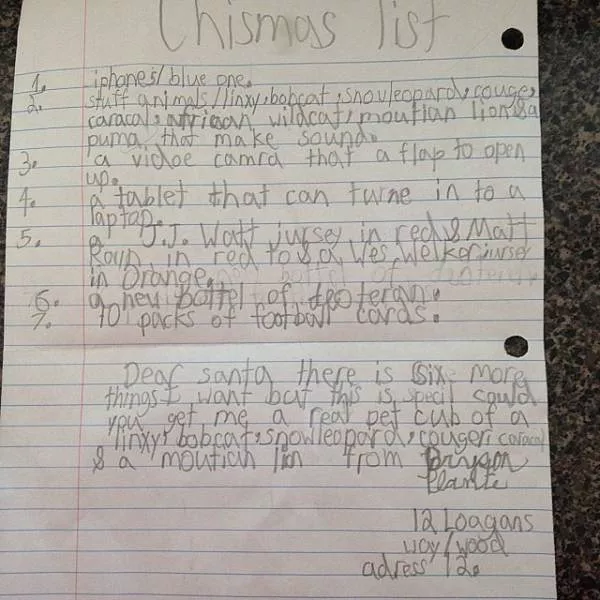 Chismas list
1. iphones/blue one.
2. stuff animals/linxy,bobcat,snowleopard,couger,
caracal, african wildcat, moutian lion & a
puma that make sound.
3. a vidoe camra that a flap to open
up.
4. a tablet that can turne in to a
laptop.
5. a J.J. Watt jursey in red & Matt
in red to & a Wes Welker jursey
in Orange.
6. a new bottel of
7. 70 packs of football cards.
Dear santa there is six more
things I want but this is specil could
you get me a real pet cub of a
linxy, bobcat, snowleopard, couger, caracal
& a moutian lion from
Plante
12 Loagans
way/wood
adress 12.